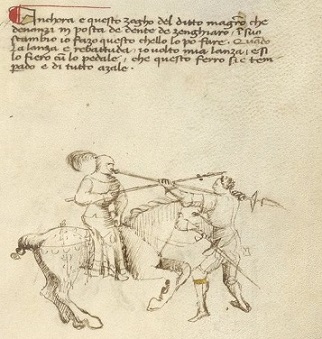 Anchora e questo zogho del ditto magistro che
denanzi in posta de dente de zenghiaro. In suo
scambio io fazo questo che llo lo po fare. Quando
la lanza e rebattuda, io volto mia lanza, e si
lo fiero cum lo pedale, che questo ferro si e tem
pado e di tutto azale.